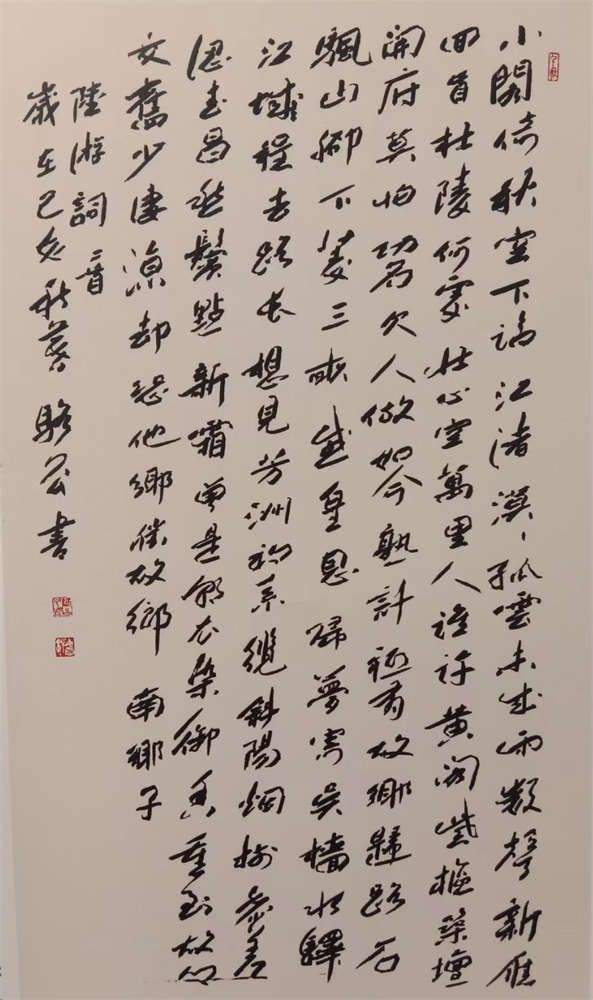 小閣倚秋空下臨江渚漠、孤雲未成雨數聲新雁
回首杜陵何處壮心空萬里人誰許黄閣紫樞築壇
開府莫怕功名欠人做如今熟計祗有故鄉歸路石
颿山脚下菱三畝 感皇恩 歸夢寄吳檣水驛
江城程去路長想見芳洲初系纜斜陽烟樹參差
認武昌愁鬢點新霜曾是朝衣染御香重到故鄉
交舊少凄涼却恐他鄉勝故鄉 南鄉子
陸游詞二首
歲在己亥秋暮 駱 書